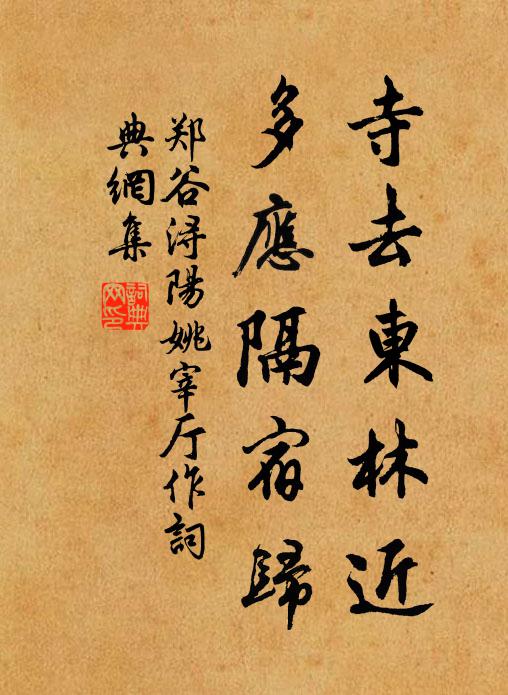 寺去東林近
多應隔宿歸
郑谷浔陽姚宰厅作詞
典網集
詞典網印